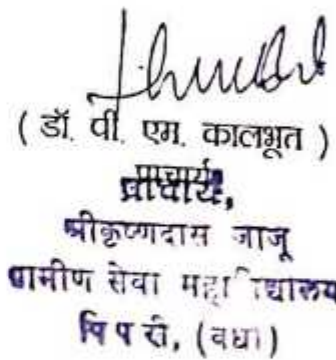 ( डॉ. वी. एम. कालभूत )
प्राचार्य
प्राचार्य,
श्रीकृष्णदास जाजू
ग्रामीण सेवा महाविद्यालय
पिपरी, (वर्धा)